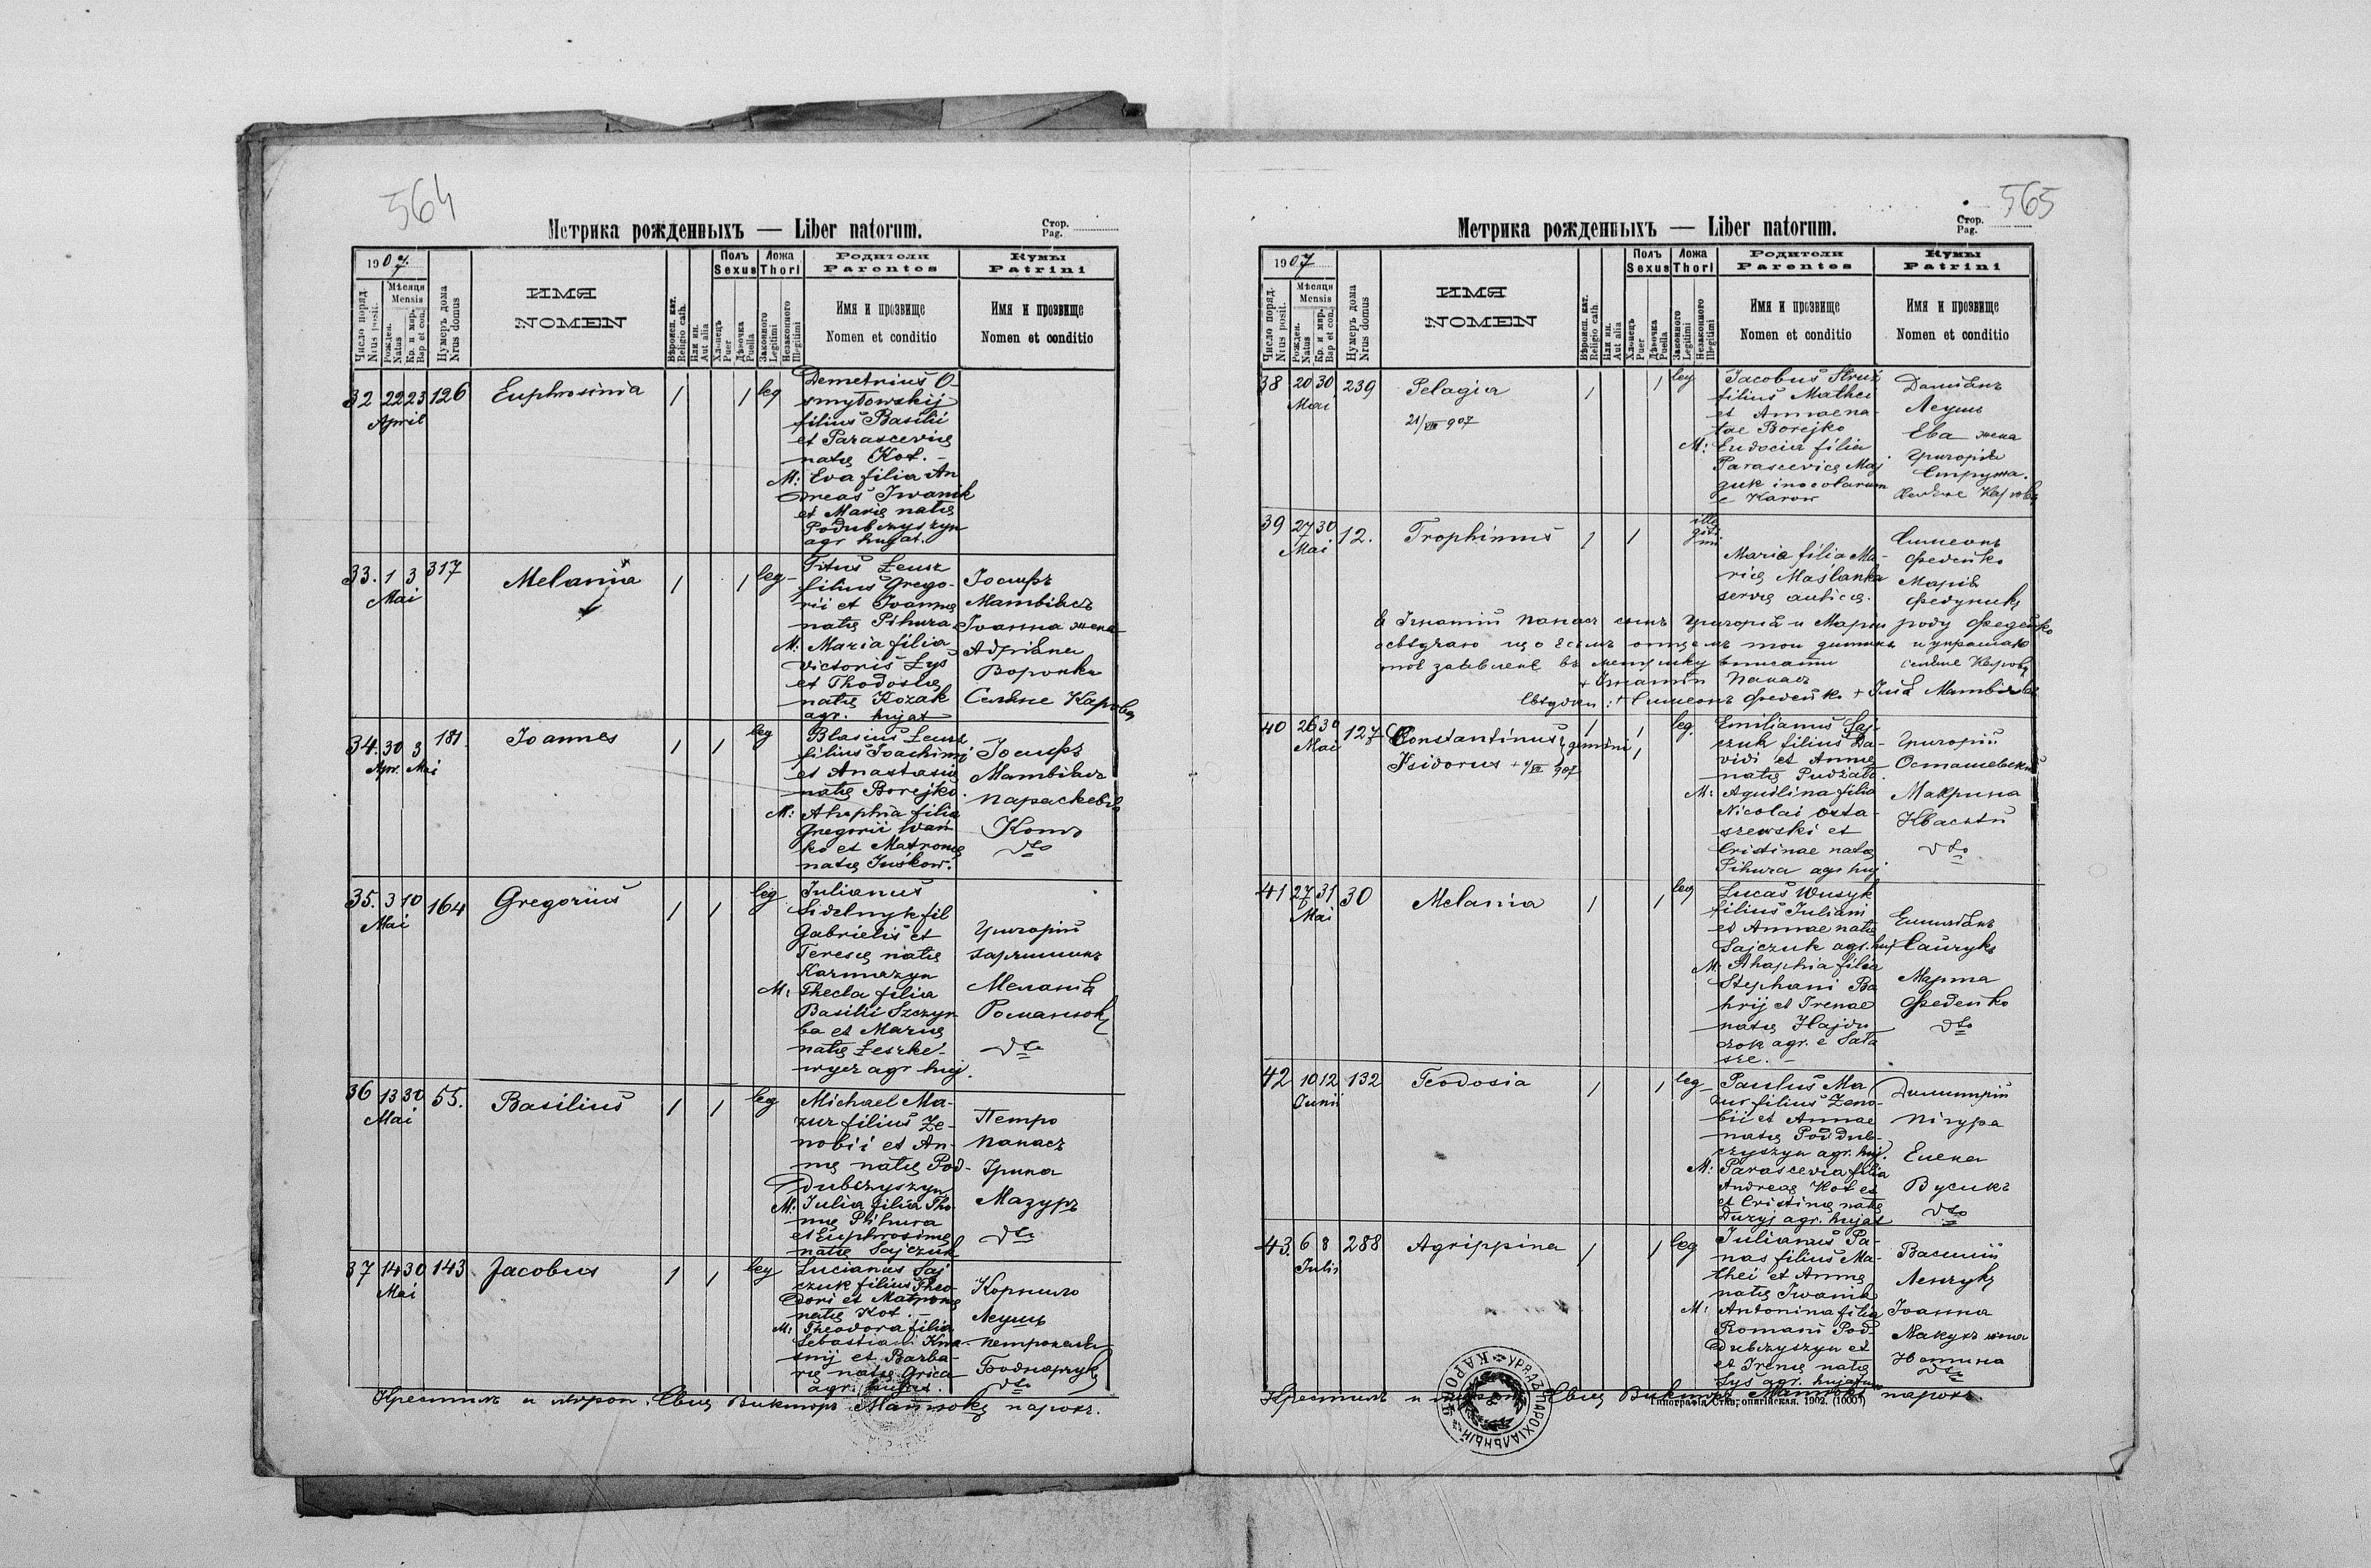 564
Метрика рожденныхъ — Liber natorum.
Стор.
Pag.
1907.
Число поряд.
Nrus posit.
Мѣсяця
Mensis
Рожден.
Natus
Кр. и мѵр.
Bap et con.
Нумеръ дома
Nrus domus
ИМЯ
NOMEN
Вѣроисп. кат.
Religio cath.
Или ин.
Aut alia
Полъ
Sexus
Хлопецъ
Puer
Дѣвочка
Puella
Ложа
Thori
Законного
Legitimi
Незаконного
Illegitimi
Родители
Parentes
Имя и прозвище
Nomen et conditio
Кумы
Patrini
Имя и прозвище
Nomen et conditio
32 22 23 126 Euphrosinia 1 1 leg
April
Demetrius O-
smyłowskij
filius Basilii
et Parascevię
natę Kot. -
M: Eva filia An
dreas Iwanik
et Marię natę
Podubczyszyn
agr hujat.
33. 1 3 317 Melania 1 1 leg-
Mai
Titus Leusz
filius Grego-
rii et Joannę
natę Pihura
M: Maria filia
Victoris Łys
et Thodosię
natę Kozak
agr. hujat
Іосифъ
Матвіясъ
Іоанна жена
Адріана
Воронка
Селяне Карова
34. 30 3 181. Joannes 1 1 leg
Apr. Mai
Blasius Leusz
filius Joachimi
et Anastasię
natę Borejko.
M: Ahaphia filia
Gregorii Iwań
ko et Matronę
natę Juśkow.
Іосифъ
Матвіясъ
Параскевія
Котъ
dto
35. 3 10 164 Gregorius 1 1 leg
Mai
Julianus
Sidelnyk fil
Gabrielis et
Teresę natę
Karmazyn
M: Thecla filia
Basilii Szczyr
ba et Marię
natę Leszke-
wycz agr huj.
Григорій
Мелянія
Романюкъ
dto
36 13 30 55. Basilius 1 1 leg
Mai
Michael Ma-
zur filius Ze-
nobii et An-
nę natę Pod-
dubczyszyn
M: Julia filia Tho
mę Pihura
et Euphrosinę
natę Sajczuk
Петро
Панасъ
Ірина
Мазуръ
dto
37 14 30 143 Jacobus 1 1 leg
Mai
Lucianus Saj
czuk filius Theo-
dori et Matronę
natę Kot. -
M: Theodora filia
Sebastiani Kwa-
snij et Barba-
rę natę Grica
agr. hujat.
Корнило
Леушъ
Петронеля
Боднарчукъ
dto
Крестилъ и мѵроп. Свящ Викторъ Матюкъ парохъ.
565
Метрика рожденныхъ — Liber natorum.
Стор.
Pag.
1907
Число поряд.
Nrus posit.
Мѣсяця
Mensis
Рожден.
Natus
Кр. и мѵр.
Bap et con.
Нумеръ дома
Nrus domus
ИМЯ
NOMEN
Вѣроисп. кат.
Religio cath.
Или ин.
Aut alia
Полъ
Sexus
Хлопецъ
Puer
Дѣвочка
Puella
Ложа
Thori
Законного
Legitimi
Незаконного
Illegitimi
Родители
Parentes
Имя и прозвище
Nomen et conditio
Кумы
Patrini
Имя и прозвище
Nomen et conditio
38 20 30 239 Pelagia 1 1 leg
Mai
21/VIII 907
Jacobus Struż
filius Mathei
et Annae na-
tae Borejko
M: Eudocia filia
Parascevię Maj
guk incolarum
e Karow
Даміянъ
Леушъ
Ева жена
Григорія
Стружа.
39 27 30 12. Trophimus 1 1 ille
giti
mi
Mai
Maria filia Ma-
rię Maślanka
servę aulicę.
Симеонъ
Федейко
Марія
Федуникъ
Игнатій Панасъ сынъ Григорія и Маріи роду Федейко
+ Игнатій Панасъ
Свѣдки: + Симеонъ Федейко + Матвіясъ
40 26 30 127 Constantinus } gemini 1 1 leg.
Mai
Isidorus 907 1
Emilianus Saj-
czuk filius Da-
vidi et Annę
natę Pudżało.
M: Aquilina filia
Nicolai Osta-
szewski et
Cristinae natę
Pihura agr huj
Григорій
Осташевскій
Макрина
Квасній
dto
41 27 31 30 Melania 1 1 leg
Mai
Lucas Wusyk
filius Juliani
et Annae natę
Sajczuk agr. huj
M: Ahaphia filia
Stephani Ba
hrij et Irenae
natę Hajdu
czok agr. e Sała
sze. -
Емиліянъ
Сайчукъ
Марта
Федейко
dto
42 10 12 132 Teodosia 1 1 leg-
Junii
Paulus Ma
zur filius Zeno-
bii et Annae
natę Poddub-
czyszyn agr. huj.
M: Parascevia filia
Andreas Kot et
et Cristinę natę
Duzyj agr. hujat
Димитрій
Пігура
Елена
Вусикъ
dto
43. 6 8 288 Agrippina 1 1 leg
Julii
Julianus Pa-
nas filius Ma-
thei et Annę
natę Iwanik
M: Antonina filia
Romani Pod-
dubczyszyn et
et Irenę natę
Łys agr. hujatum
Василій
Ленчукъ
Іоанна
Макухъ жена
dto
Крестилъ и Свящ Викторъ Матюкъ парохъ
УРЯДЪ ПАРОХІАЛЬНЫЙ КАРОВЪ
Типографія Ставропигійская. 1902. (10000)